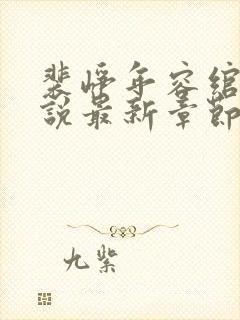 裴峥年容绾
說最新章節
九紫